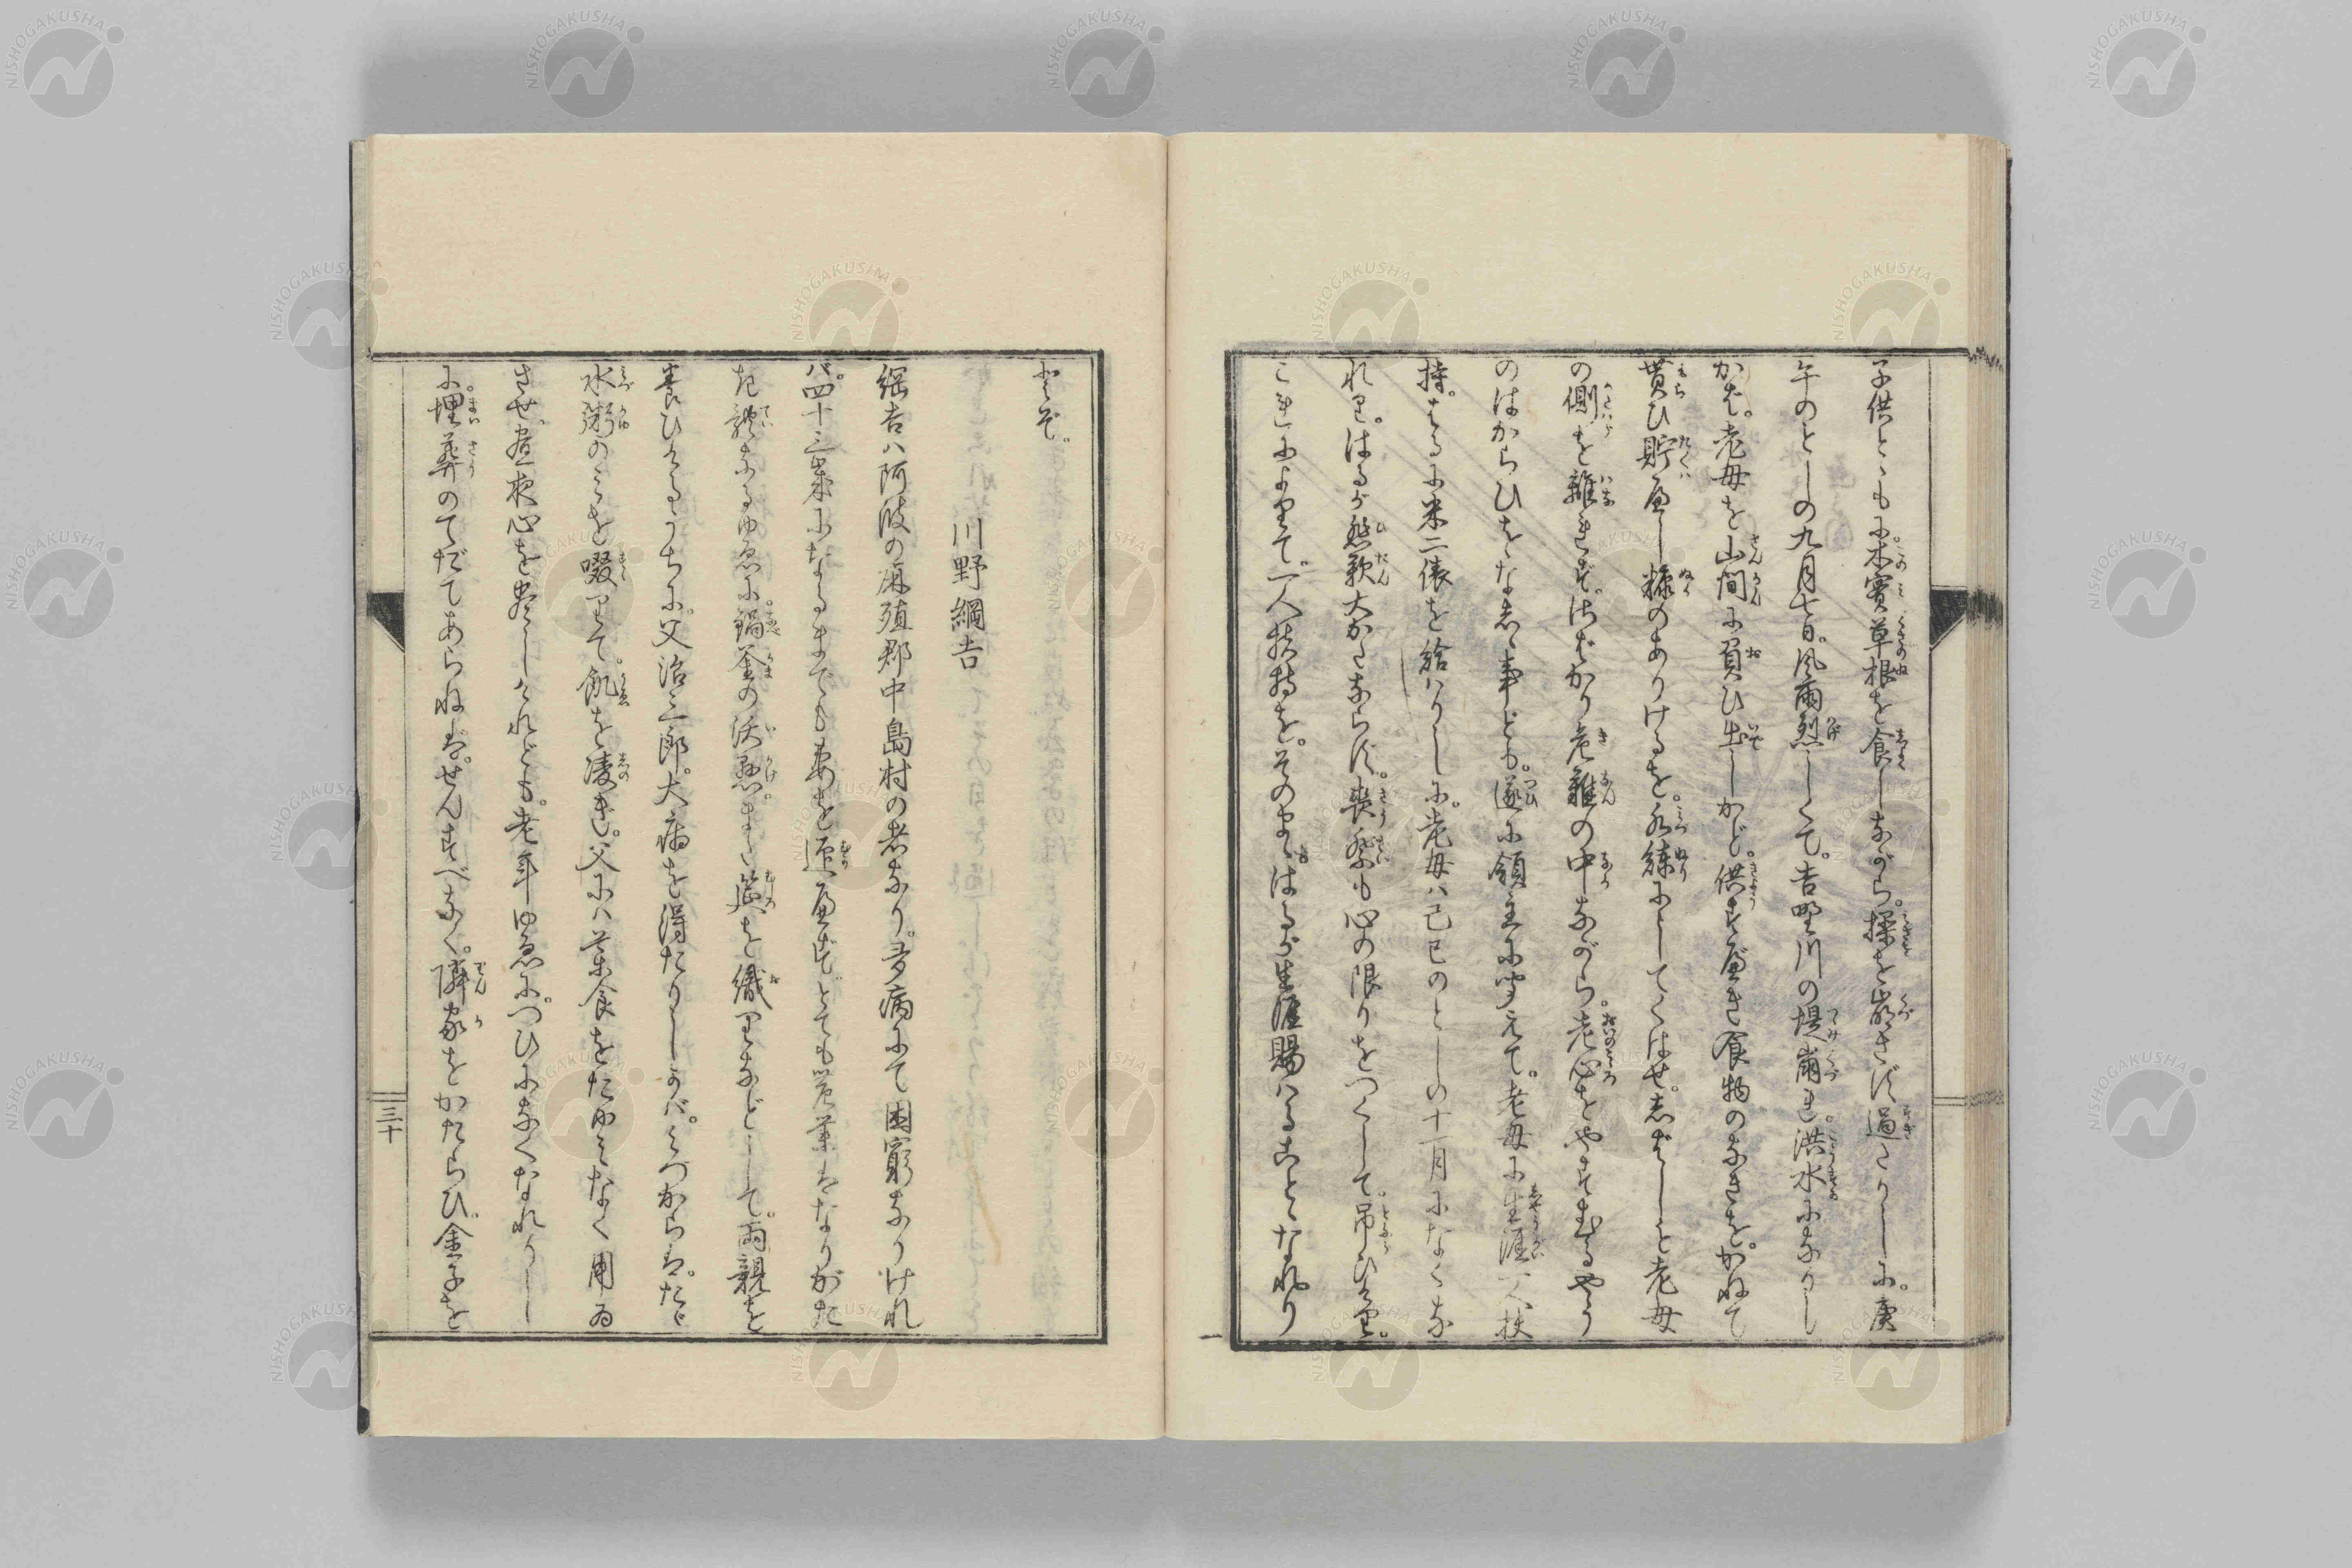 子供とゝもに。木實草根を食しながら。操を崩さず過こりしに。庚
午のとしの九月七日。風雨烈しくて。吉野川の堤崩れ。洪水になりし
かば。老母を山間に負ひ出しかど。供すべき食物のなきを。かねて
貰ひ貯へし糠のありけるを。水練にしてくはせ。志ばしも老母
の側を離れず。さばかり危難の中ながら。老心をやすむるやう
のはからひを。なしゝ事ども。遂に領主に聞えて。老母に生涯一人扶
持。はるに米二俵を給はりしに。老母ハ己巳のとしの十一月になくな
れり。はるが悲歎大かたならず。喪祭も心の限りをつくして。吊ひけり。
これによりて。一人扶持を。そのまゝはるが生涯賜ハることゝなれり
とぞ。
川野綱吉
綱吉ハ阿波の麻殖郡中島村の者なり。多病にて困窮なりけれ
バ。四十三歳になるまでも妻を迎へず。とても営業はなりがた
き體なるゆゑに。鍋釜の沃懸。また筵を織りなどして。両親を
養ひけるうちに。父治三郎。大病を得たりしかバ。みづからは。たゞ
水粥のみを啜りて。飢を凌ぎ。父にハ菜食をたゆみなく用ゐ
させ。昼夜心を尽しけれども。老年ゆゑに。つひになくなれりし
に。埋葬のてだてあらねば。せんすべなく。隣家をかたらひ。金子を
三十
NISHOGAKUSHA